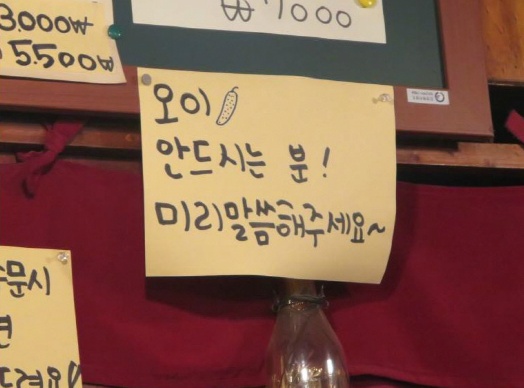 3.000₩
5.500₩
₩7000
오이
안드시는 분!
미리말씀해주세요~
문시